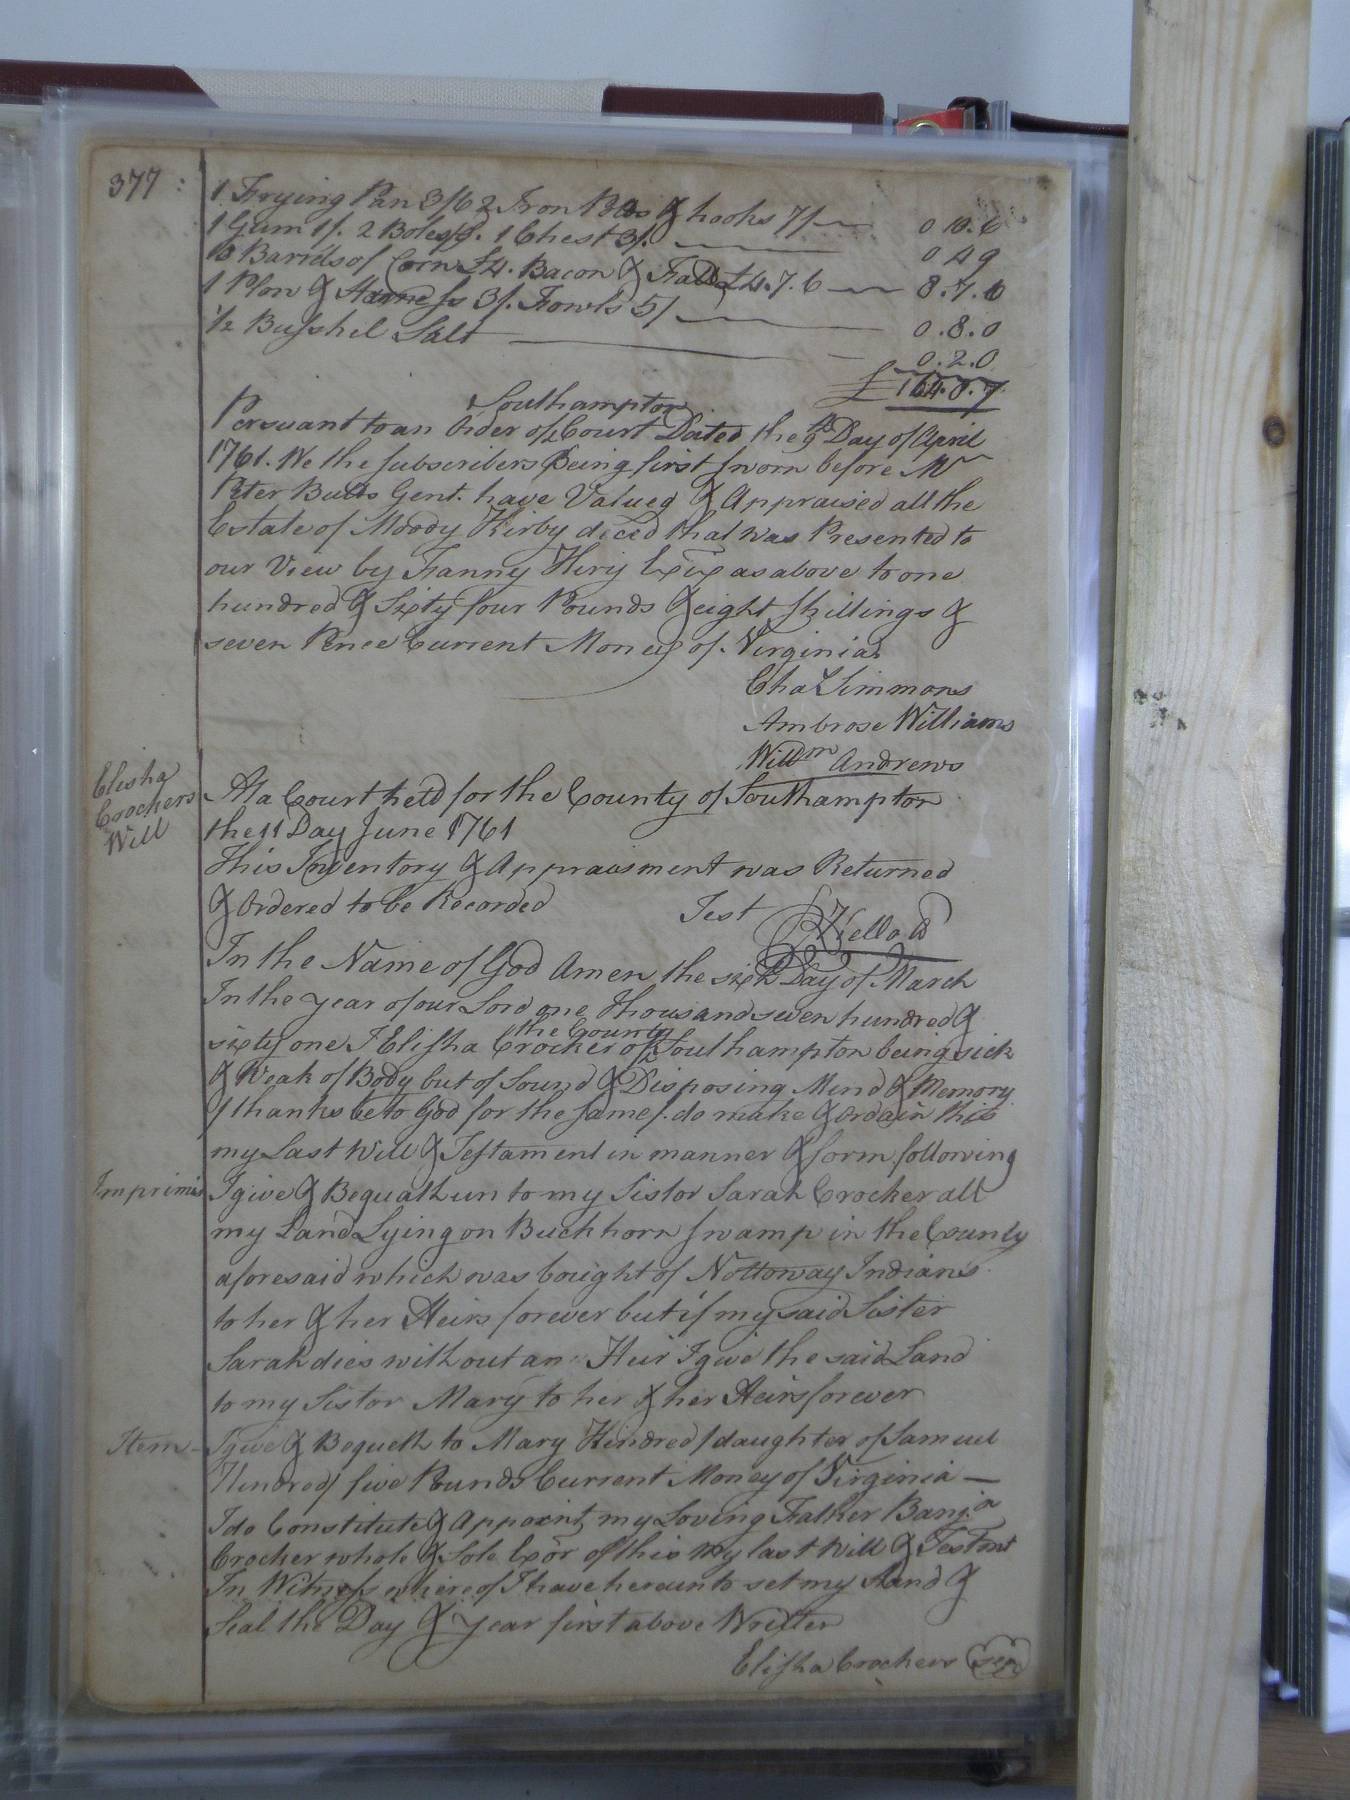 377 :
1 Frying Pan 3/6 2 Iron & hooks 7/ 0 10.6
1 Gum 1/. 2 1 Chest 3/. 0 4 9
10 Barrels of Corn £4. Bacon & £4.7.6 8.7.6
1 Plow & Harness 3/. Fowls 5/ 0.8.0
1/2 Busshel Salt 0.2.0
£164.8.7
Southampton
Persuant to an Order of Court Dated the 9th Day of April
1761. We the subscribers Being first sworn before Mr
Peter Butts Gent. have Valued & Appraised all the
Estate of Moody Kirby deced that was Presented to
our View by Fanny as above to one
hundred & Sixty four Pounds & eight shillings &
seven Pence Current Money of Virginia
Chas Simmons
Ambrose Williams
Willm Andrews
Elisha
Crockers
Will
At a Court held for the County of Southampton
the 11 Day June 1761
This Inventory & Appraisment was Returned
& Ordered to be Recorded Test
In the Name of God Amen the sixth Day of March
In the year of our Lord one Thousand seven hundred &
the County
sixty one I Elisha Crocker of Southampton being sick
& Weak of Body but of Sound & Disposing Mind & Memory
thanks be to God for the same/. do make & ordain this
my Last Will & Testament in manner & form following
Imprimis I give & Bequath un to my Sistor Sarah Crocker all
my Land Lying on Buckhorn swamp in the County
aforesaid which was bought of Nottoway Indians
to her & her Heirs forever but if my said Sister
Sarah dies with out an Heir I give the said Land
to my Sistor Mary to her & her Heirs forever
Item I give & Bequeth to Mary Kindred/daughter of Samuel
Kindred/ five Pounds Current Money of Virginia
I do Constitute & Appoint my Loving Father Banj.a
Crocker whole & Sole Exor of this my last Will & Testmt
In Witness whereof I have hereunto set my Hand &
Seal the Day & year first above Written
Elisha Crocker